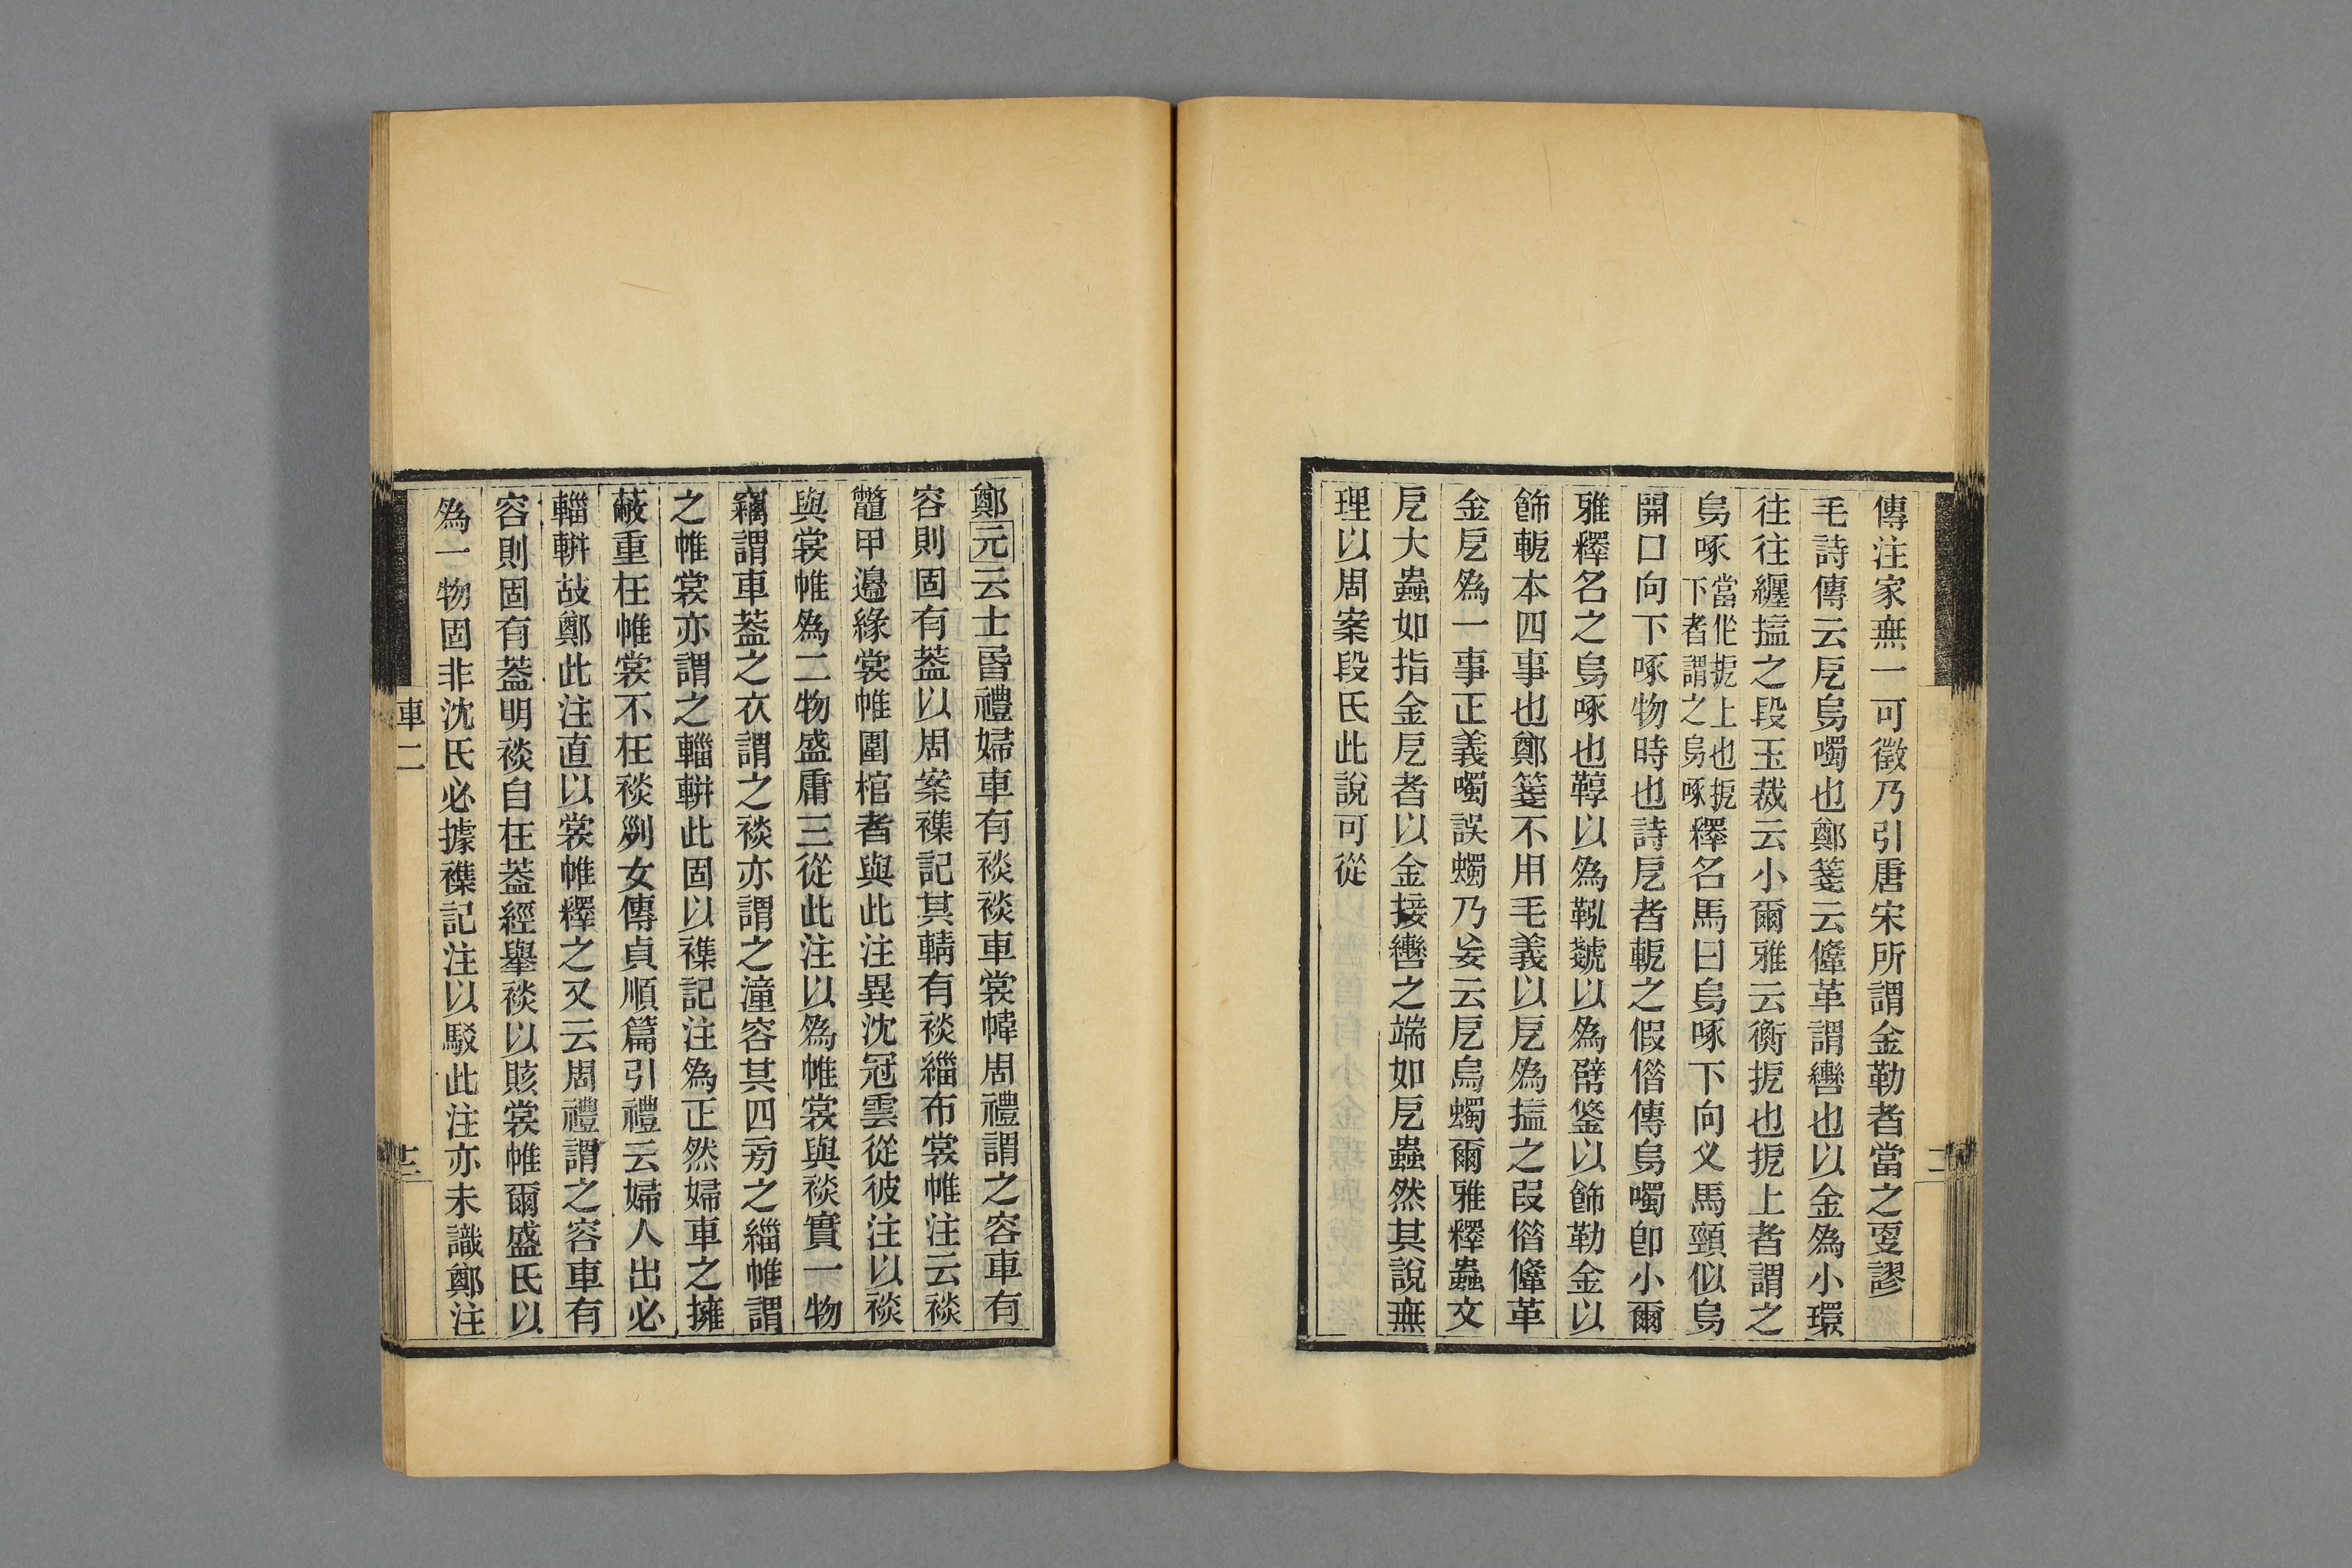 傳注家無一可徵乃引唐宋所謂金勒者當之耎謬
毛詩傳云厄烏噣也鄭箋云鞗革謂轡也以金為小環
往往纏搤之段玉裁云小爾雅云衡扼也扼上者謂之
烏啄當作扼上也扼下者謂之烏啄釋名馬曰烏啄下向乂馬頸似烏
開口向下啄物時也詩厄者軛之假借傳烏噣卽小爾
雅釋名之烏啄也鞹以為鞃虦以為幦鋚以飾勒金以
飾軛本四事也鄭箋不用毛義以厄為搤之叚借鞗革
金厄為一事正義噣誤蠋乃妄云厄烏蠋爾雅釋蟲文
厄大蟲如指金厄者以金接轡之端如厄蟲然其說無
理以周案段氏此說可從
鄭元云士昏禮婦車有裧裧車裳幃周禮謂之容車有
容則固有蓋以周案襍記其輤有裧緇布裳帷注云裧
鼈甲邊緣裳帷圍棺者與此注異沈冠雲從彼注以裧
與裳帷為二物盛庸三從此注以為帷裳與裧實一物
竊謂車蓋之衣謂之裧亦謂之潼容其四旁之緇帷謂
之帷裳亦謂之輜軿此固以襍記注為正然婦車之擁
蔽重在帷裳不在裧列女傳貞順篇引禮云婦人出必
輜軿故鄭此注直以裳帷釋之又云周禮謂之容車有
容則固有蓋明裧自在蓋經舉裧以賅裳帷爾盛氏以
為一物固非沈氏必據襍記注以駁此注亦未識鄭注
車二